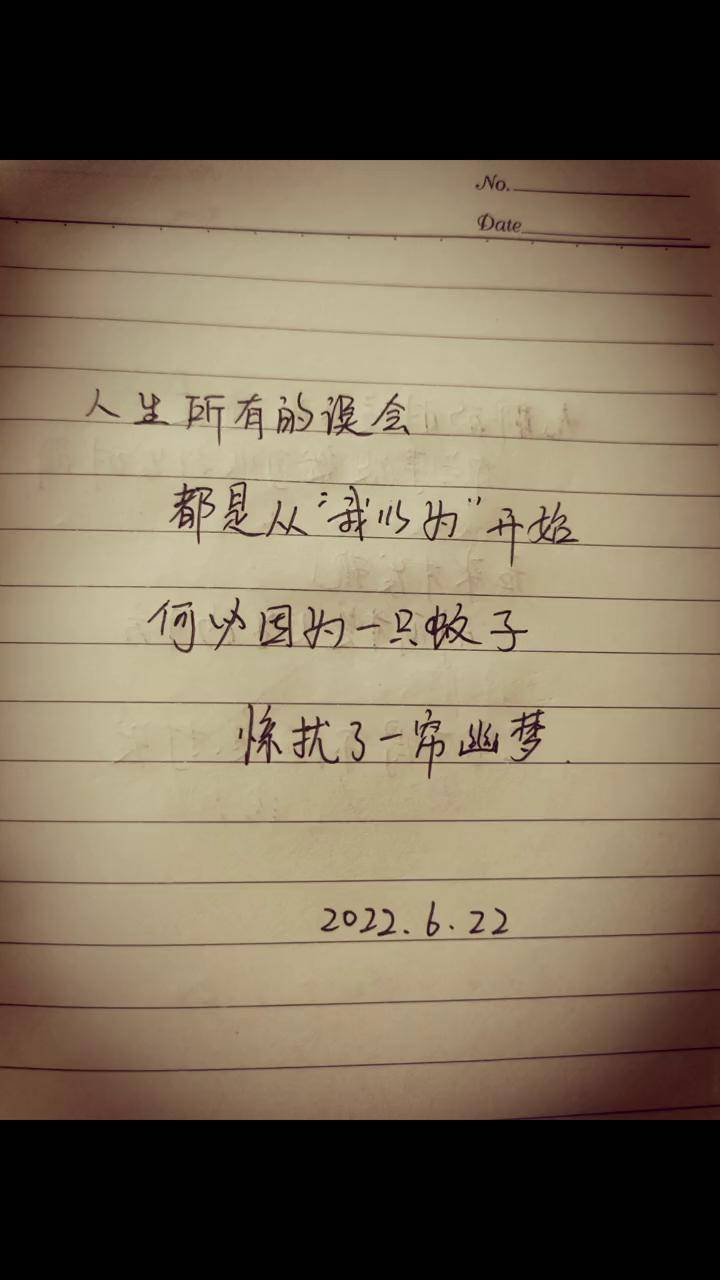 No.
Date
人生所有的误会
都是从“我以为”开始
何必因为一只蚊子
惊扰了一帘幽梦
2022.6.22